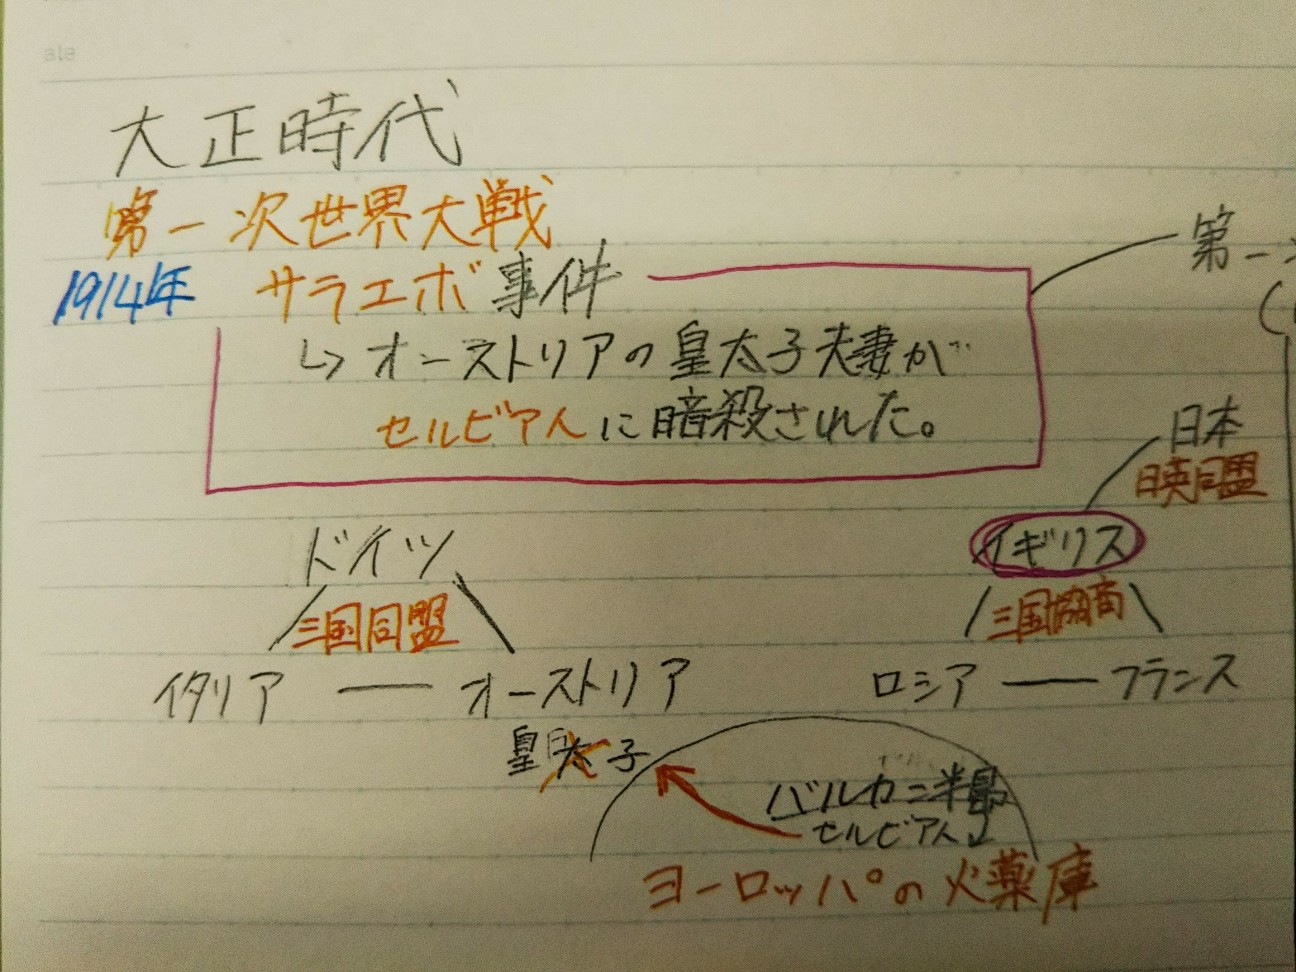 大正時代
第一次世界大戦
1914年 サラエボ事件
第一
↳オーストリアの皇太子夫妻が
セルビア人に暗殺された。
日本
日英同盟
ドイツ
イギリス
三国同盟
三国協商
イタリア ー オーストリア
ロシア ー フランス
皇太子
バルカン半島
セルビア人
ヨーロッパの火薬庫